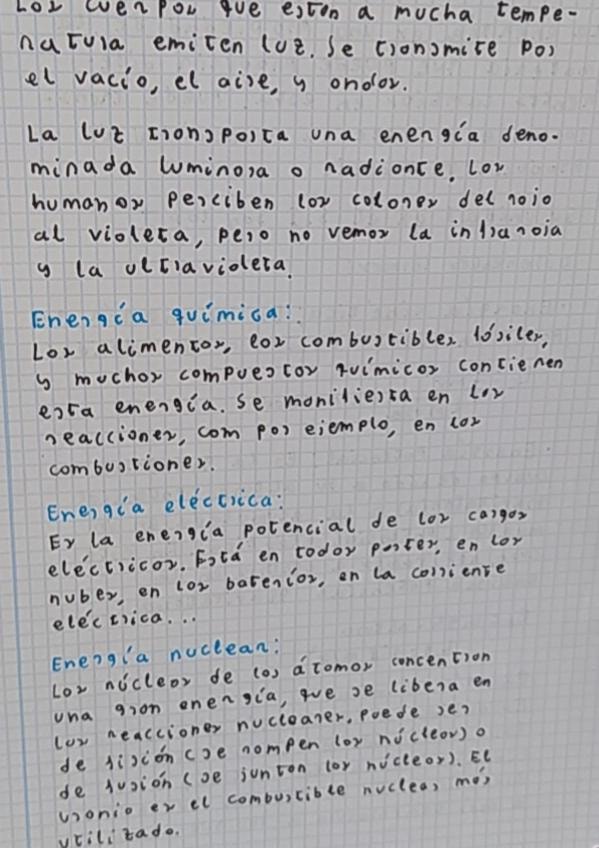 Los cuerpos que están a mucha tempe-
ratura emiten luz. Se transmite por
el vacío, el aire, y ondas.
La luz transporta una energía deno-
minada luminosa o radiante. Los
humanos perciben los colores del rojo
al violeta, pero no vemos la infraroja
y la ultravioleta.
Energía química:
Los alimentos, los combustibles fósiles,
y muchos compuestos químicos contienen
esta energía. Se manifiesta en las
reacciones, com por ejemplo, en las
combustiones.
Energía eléctrica:
Es la energía potencial de las cargas
eléctricas. Está en todas partes, en las
nubes, en las baterías, en la corriente
eléctrica...
Energía nuclear:
Los núcleos de los átomos concentran
una gran energía, que se libera en
las reacciones nucleares. Puede ser
de fisión (se rompen los núcleos) o
de fusión (se juntan los núcleos). El
uranio es el combustible nuclear más
utilizado.